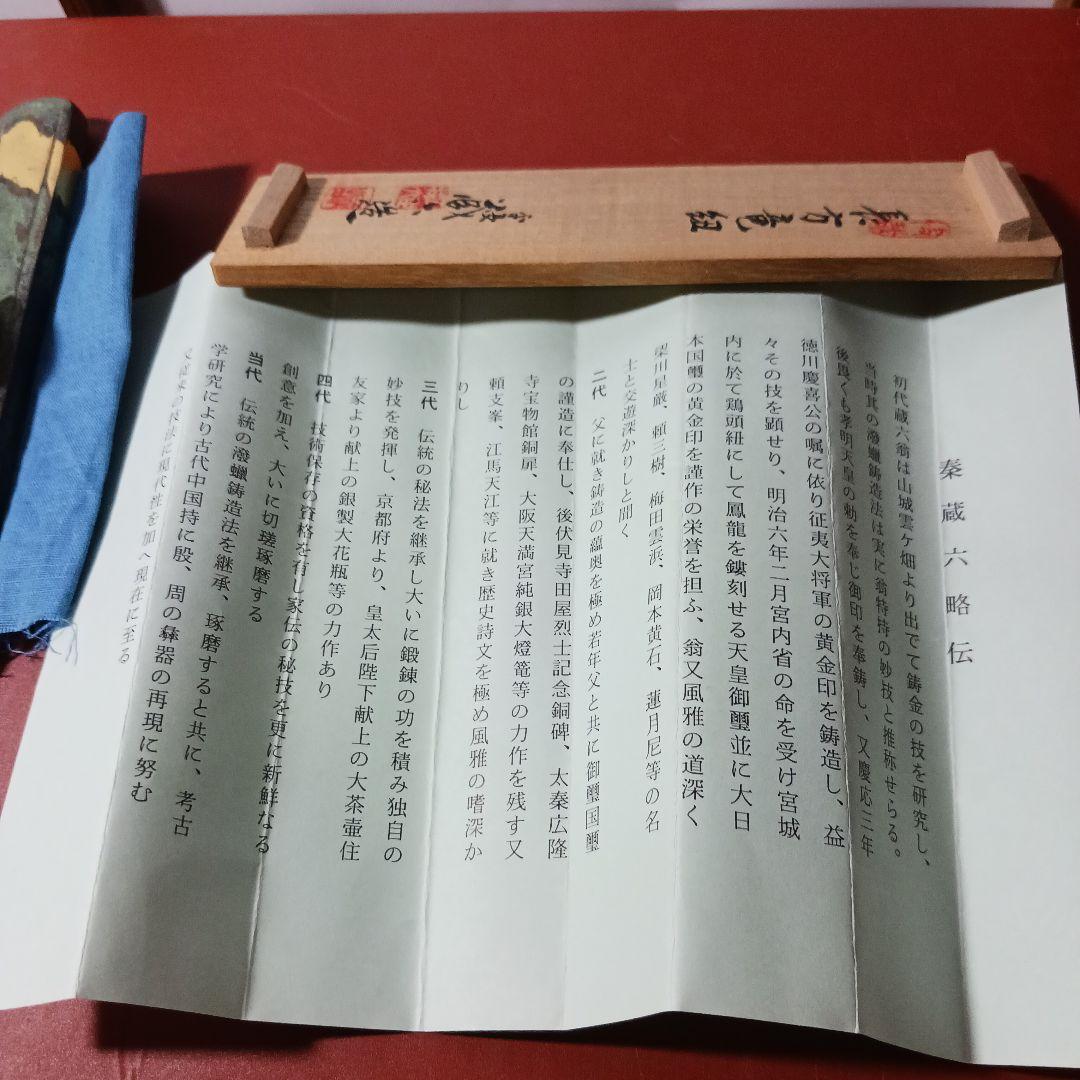 秦蔵六略伝
初代蔵六翁は山城雲ケ畑より出でて鋳金の技を研究し、
当時其の潑蠟鋳造法は実に翁特持の妙技と推称せらる。
後畏くも孝明天皇の勅を奉じ御印を奉鋳し、又慶応三年
徳川慶喜公の嘱に依り征夷大将軍の黄金印を鋳造し、益
々その技を顕せり、明治六年二月宮内省の命を受け宮城
内に於て鶏頭紐にして鳳龍を鏤刻せる天皇御璽並に大日
本国璽の黄金印を謹作の栄誉を担ふ、翁又風雅の道深く
梁川星巌、頼三樹、梅田雲浜、岡本黄石、蓮月尼等の名
士と交遊深かりしと聞く
二代 父に就き鋳造の蘊奥を極め若年父と共に御璽国璽
の謹造に奉仕し、後伏見寺田屋烈士記念銅碑、太秦広隆
寺宝物館銅扉、大阪天満宮純銀大燈篭等の力作を残す又
頼支峯、江馬天江等に就き歴史詩文を極め風雅の嗜深か
りし
三代 伝統の秘法を継承し大いに鍛錬の功を積み独自の
妙技を発揮し、京都府より、皇太后陛下献上の大茶壷住
友家より献上の銀製大花瓶等の力作あり
四代 技術保存の資格を有し家伝の秘技を更に新鮮なる
創意を加え、大いに切瑳琢磨する
当代 伝統の潑蠟鋳造法を継承、琢磨すると共に、考古
学研究により古代中国持に殷、周の彝器の再現に努む
の技法に現代性を加へ現在に至る
蔵六造